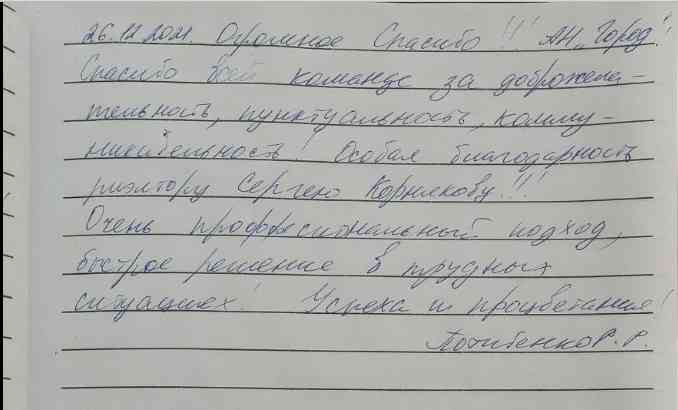 26.12.2021. Огромное Спасибо!!! АН „Город"!
Спасибо всей команде за доброжела-
тельность, пунктуальность, комму-
никабельность! Особая благодарность
риэлтору Сергею Корнякову!!!
Очень проффесиональный подход,
быстрое решение в трудных
ситуациях! Успеха и процветания!
Р. Р.